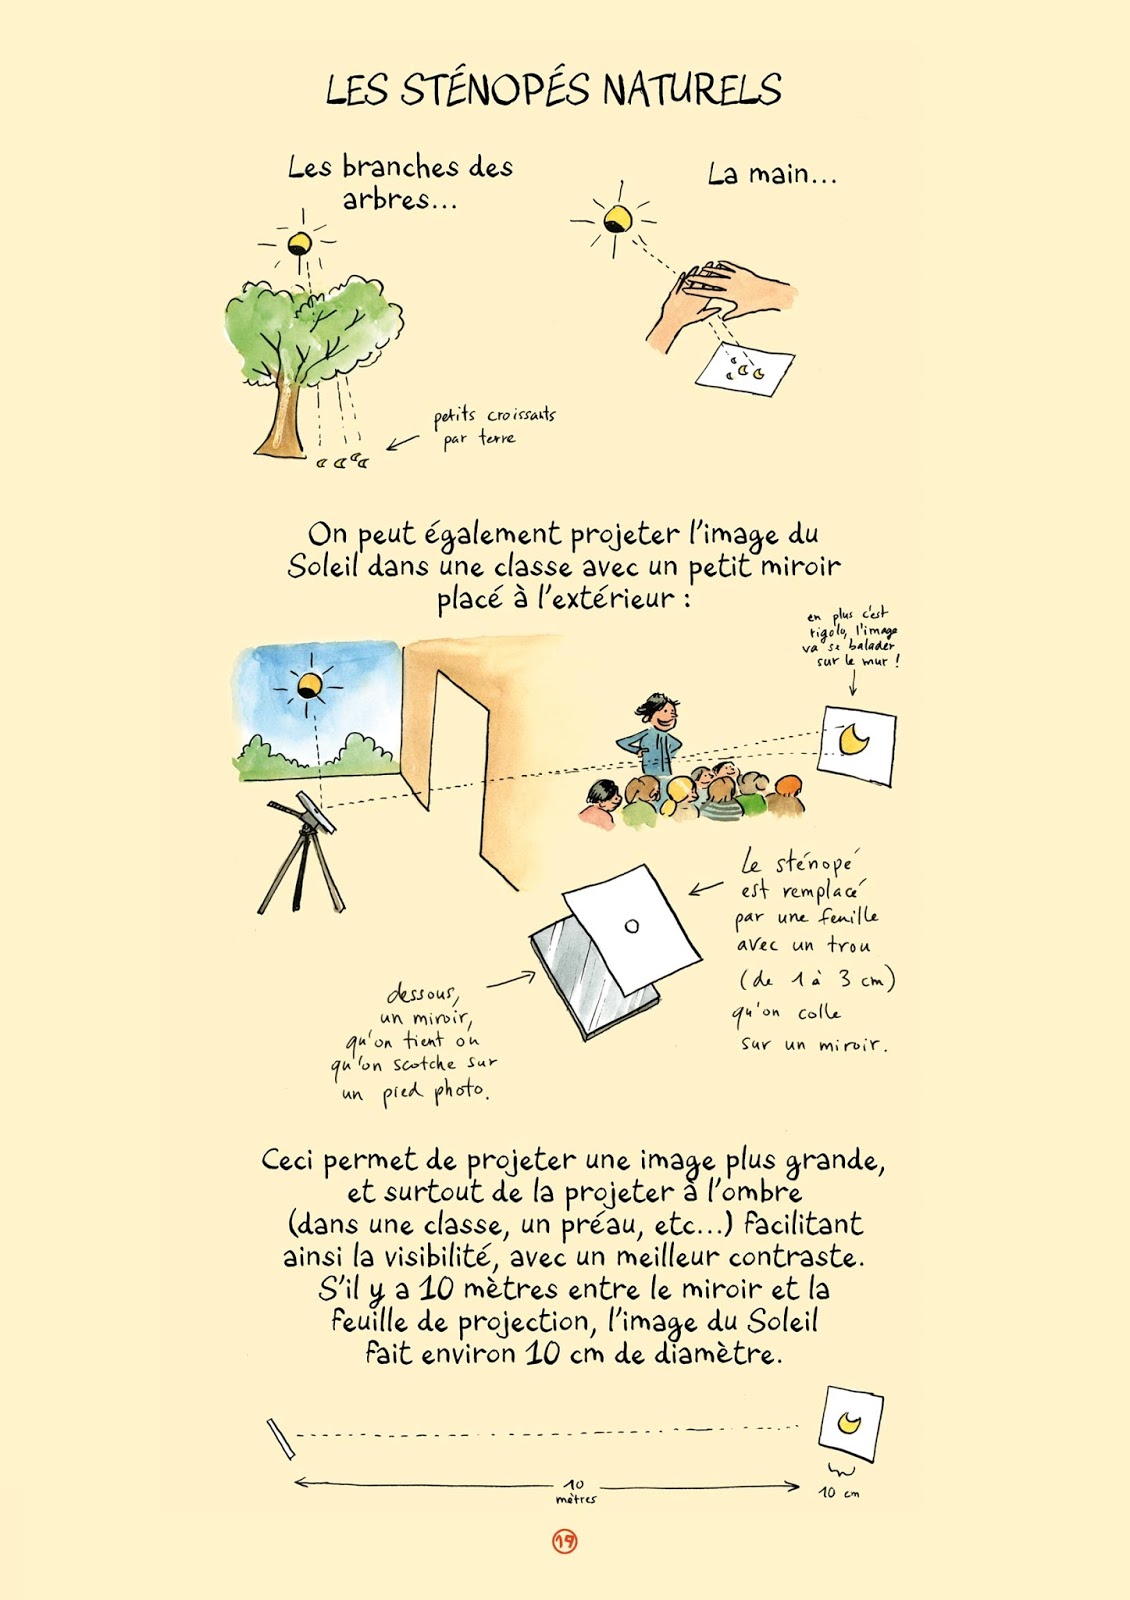 LES STÉNOPÉS NATURELS
Les branches des
arbres...
La main...
petits croissants
par terre
On peut également projeter l'image du
Soleil dans une classe avec un petit miroir
placé à l'extérieur :
en plus c'est
rigolo, l'image
va se balader
sur le mur !
Le sténopé
est remplacé
par une feuille
avec un trou
(de 1 à 3 cm)
qu'on colle
sur un miroir.
dessous,
un miroir,
qu'on tient ou
qu'on scotche sur
un pied photo.
Ceci permet de projeter une image plus grande,
et surtout de la projeter à l'ombre
(dans une classe, un préau, etc...) facilitant
ainsi la visibilité, avec un meilleur contraste.
S'il y a 10 mètres entre le miroir et la
feuille de projection, l'image du Soleil
fait environ 10 cm de diamètre.
10
mètres
10 cm
19